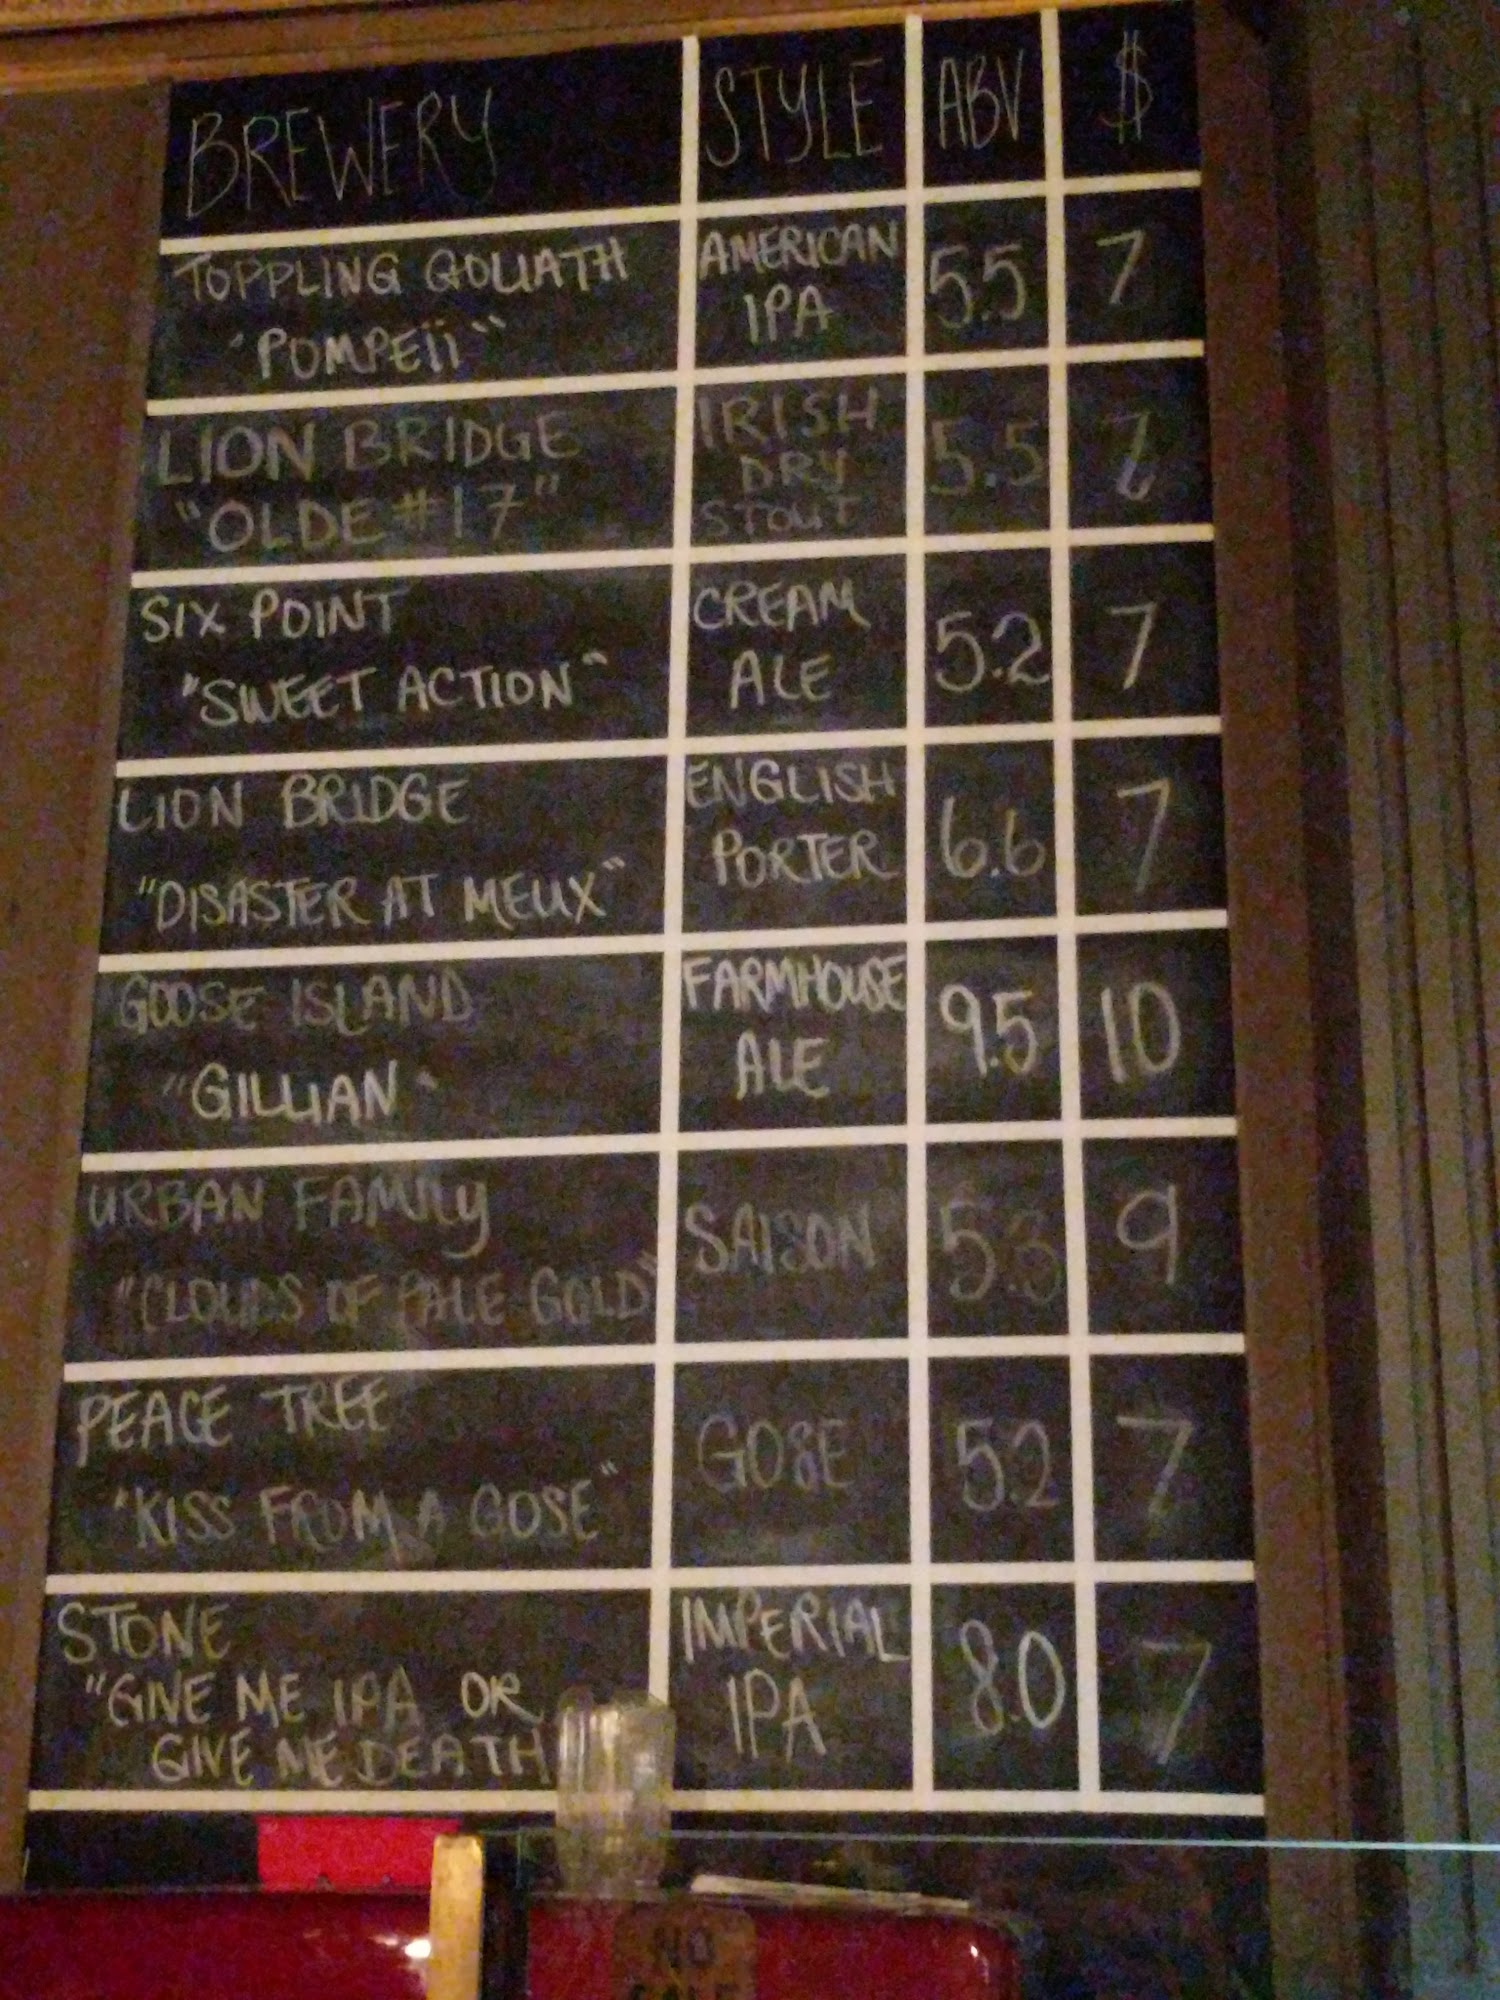 BREWERY STYLE ABV $
TOPPLING GOLIATH AMERICAN 5.5 7
"POMPEII" IPA
LION BRIDGE IRISH 5.5
"OLDE #17" DRY
STOUT
SIX POINT CREAM 5.2 7
"SWEET ACTION" ALE
LION BRIDGE ENGLISH 6.6 7
"DISASTER AT MEUX" PORTER
GOOSE ISLAND FARMHOUSE 9.5 10
"GILLIAN" ALE
URBAN FAMILY SAISON 5.3 9
"CLOUDS OF PALE GOLD"
PEACE TREE GOSE 5.2 7
"KISS FROM A GOSE"
STONE IMPERIAL 8.0 7
"GIVE ME IPA OR IPA
GIVE ME DEATH
NO
SALE